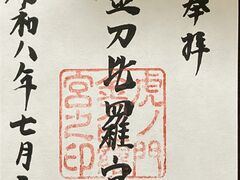 奉拝
金刀比羅宮
令和八年七月
虎ノ門
宮之印